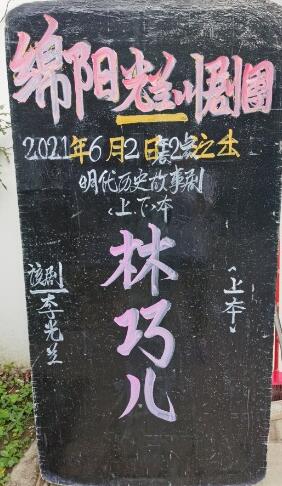 绵阳光兰川剧团
2021年6月2日2点之出
明代历史故事剧
<上.下>本
林巧儿
<上本>
该剧李光兰